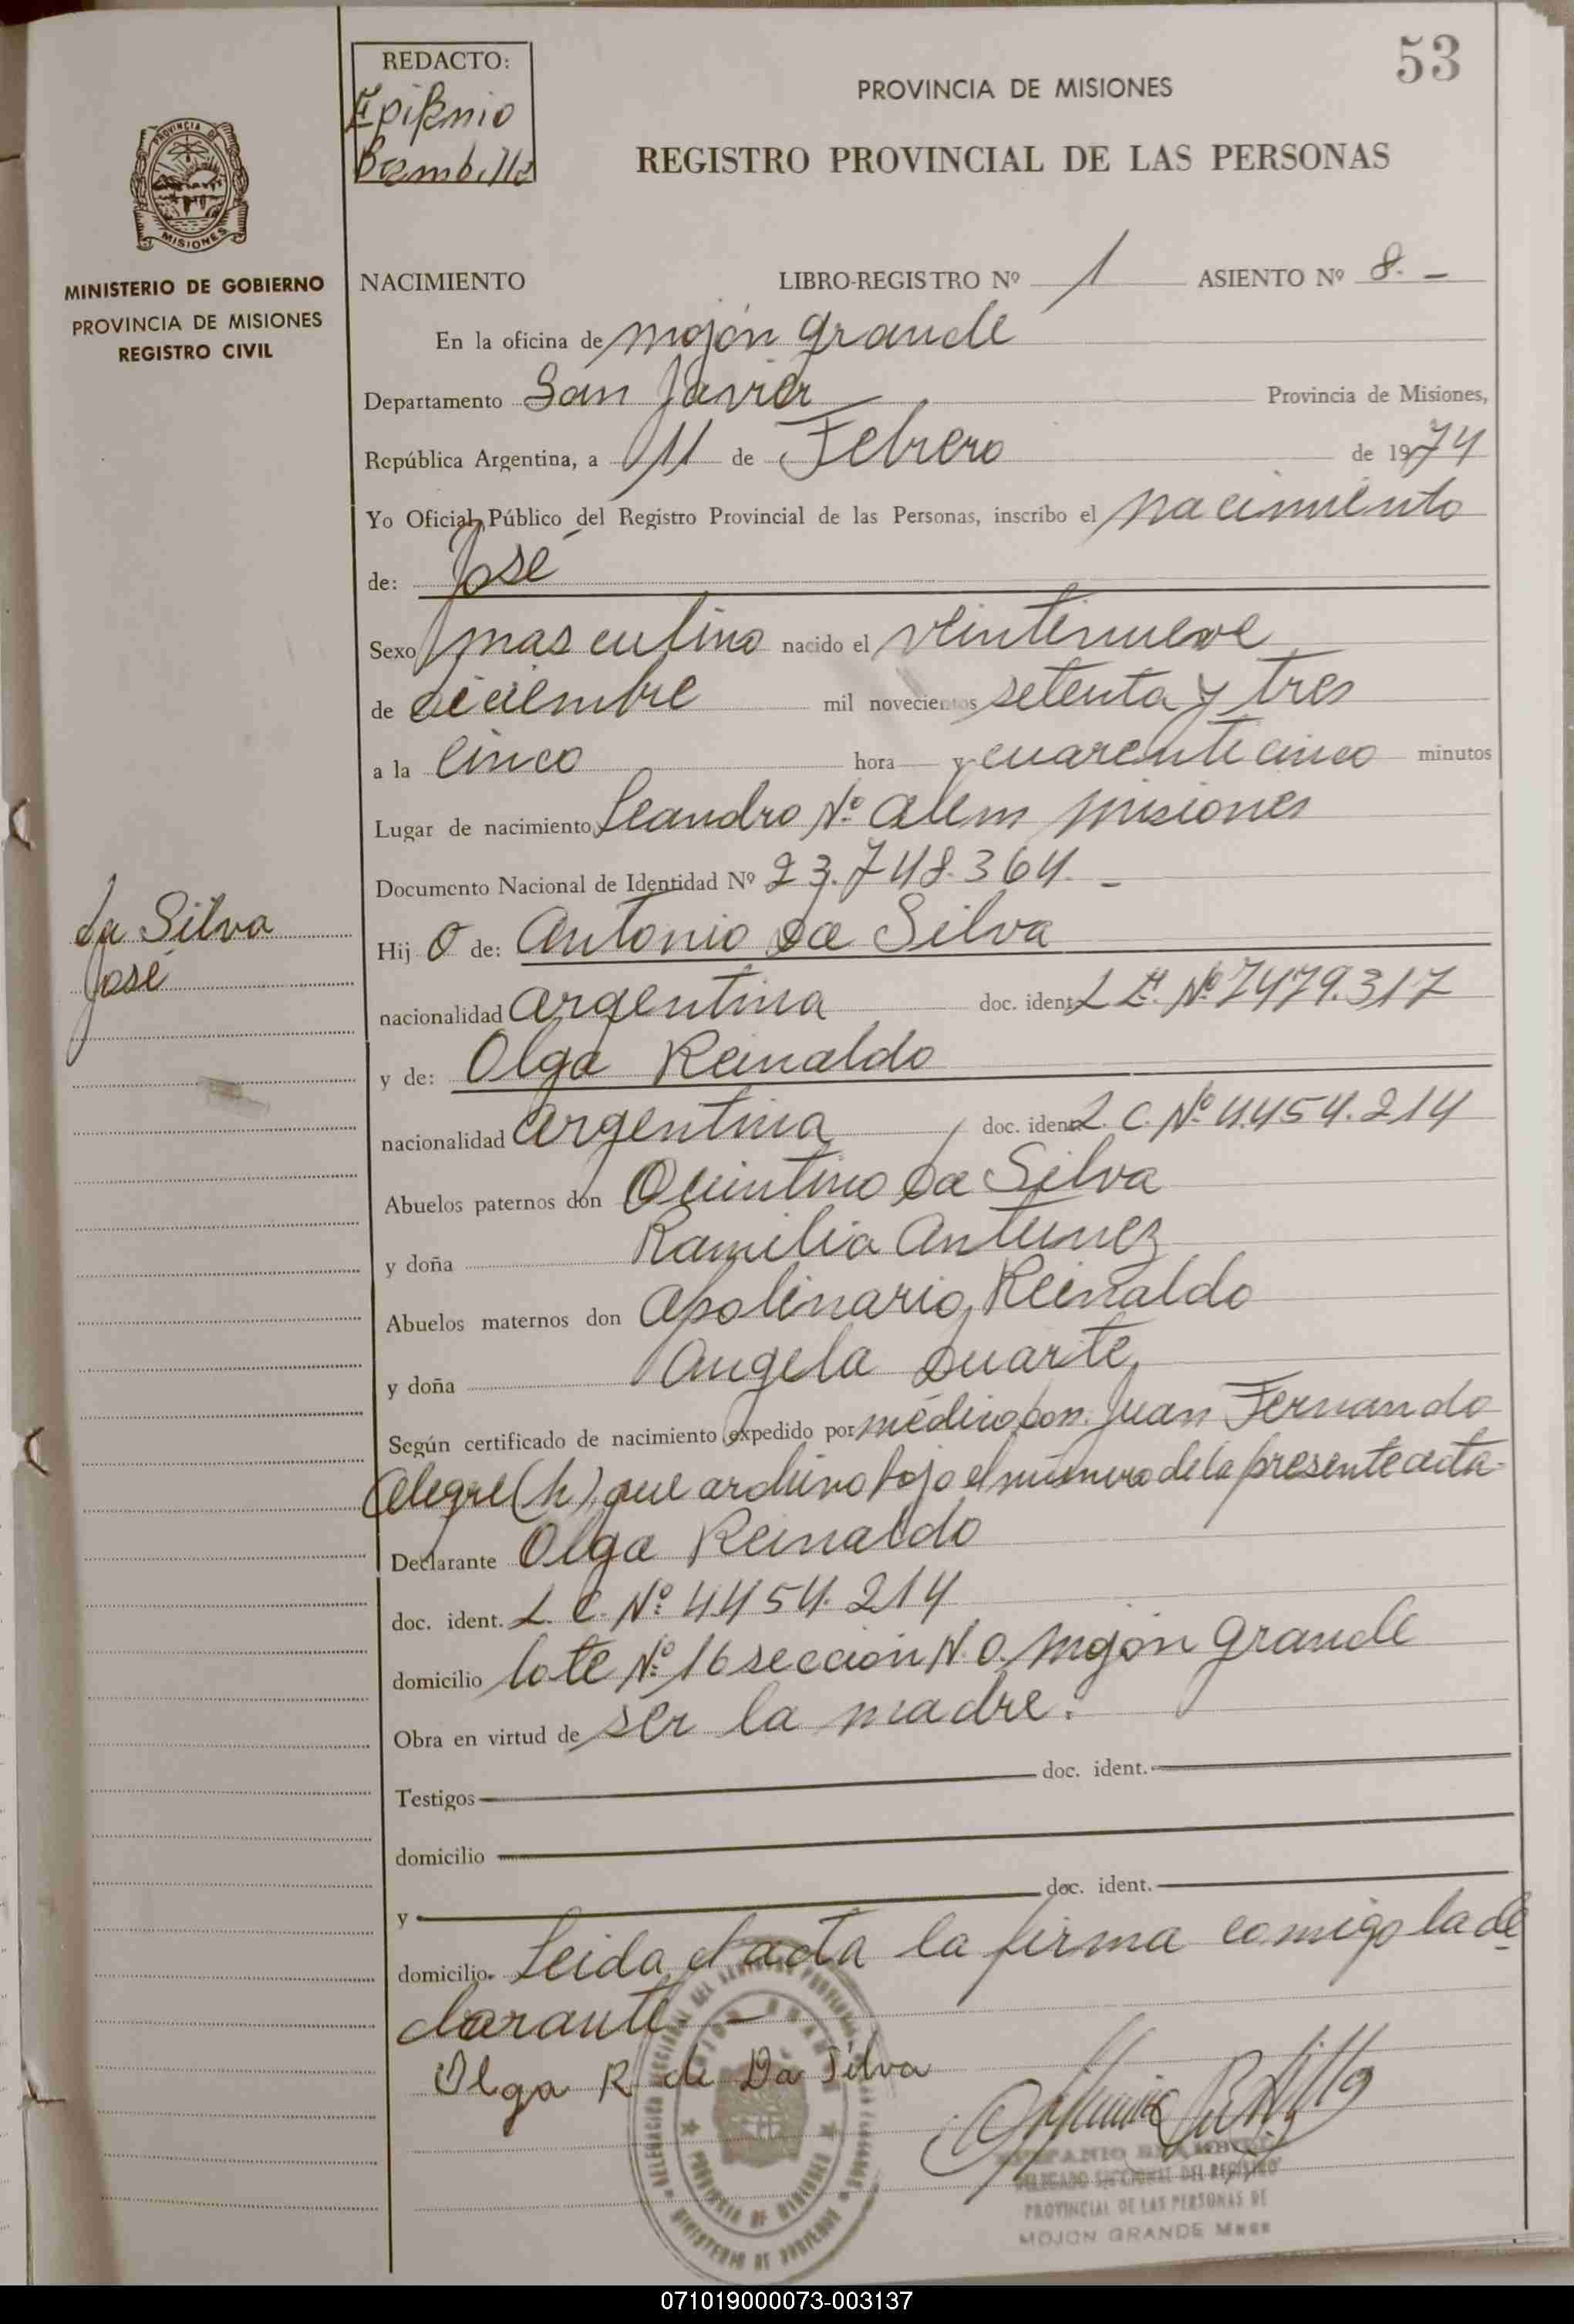 53
REDACTO:
Epifanio
Brambilla
PROVINCIA DE MISIONES
REGISTRO PROVINCIAL DE LAS PERSONAS
PROVINCIA DE
MISIONES
MINISTERIO DE GOBIERNO
PROVINCIA DE MISIONES
REGISTRO CIVIL
NACIMIENTO LIBRO-REGISTRO Nº 1 ASIENTO Nº 8. -
En la oficina de mojón grande
Departamento San Javier Provincia de Misiones,
República Argentina, a 11 de Febrero de 1974
Yo Oficial Público del Registro Provincial de las Personas, inscribo el nacimiento
de: José
Sexo masculino nacido el veintenueve
de diciembre mil novecientos setenta y tres
a la cinco hora y cuarenticinco minutos
Lugar de nacimiento Leandro Nº alem misiones
Documento Nacional de Identidad Nº 23.748.364. -
da Silva
José
Hijo de: Antonio da Silva
nacionalidad argentina doc. ident. L E. Nº 7479.317
y de: Olga Reinaldo
nacionalidad argentina doc. ident. L. C. Nº 4.454.214
Abuelos paternos don Quintino da Silva
y doña Ramilia Antunez
Abuelos maternos don Apolinario Reinaldo
y doña Angela Duarte,
Según certificado de nacimiento expedido por médico don. Juan Fernando
Alegre (h), que archivo bajo el número de la presente acta-
Declarante Olga Reinaldo
doc. ident. L. C. Nº 4454.214
domicilio lote Nº 16 sección N. O. mojón grande
Obra en virtud de ser la madre.
Testigos doc. ident.
domicilio
y doc. ident.
domicilio. Leida el acta la firma comigo la de
clarante -
Olga R de Da Silva
PROVINCIA DE MISIONES
EPIFANIO BRAMBILLA
DELEGADO SECCIONAL DEL REGISTRO
PROVINCIAL DE LAS PERSONAS DE
MOJON GRANDE Mnes
071019000073-003137